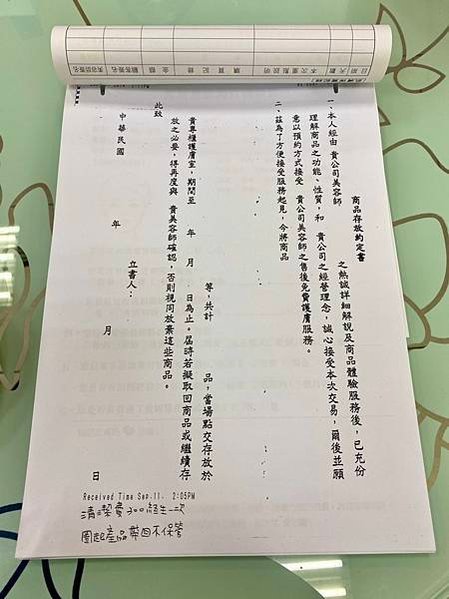 本次重點說明 購買記錄 金額 顧客簽名 美容師簽名
商品存放約定書
一、本人經由 貴公司美容師 之熱誠詳細解說及商品體驗服務後，已充份
理解商品之功能、性質，和 貴公司之經營理念，誠心接受本次交易，爾後並願
意以預約方式接受 貴公司美容師之售後免費護膚服務。
二、茲為了方便接受服務起見，今將商品
等，共計 品，當場點交存放於
貴專櫃護膚室，期間至 年 月 日為止。屆時若擬取回商品或繼續存
放之必要，得再度與 貴美容師確認，否則視同放棄這些商品。
此致
立書人：
中華民國 年 月 日
Received Time Sep.11. 2:05PM
產品帶回不保管